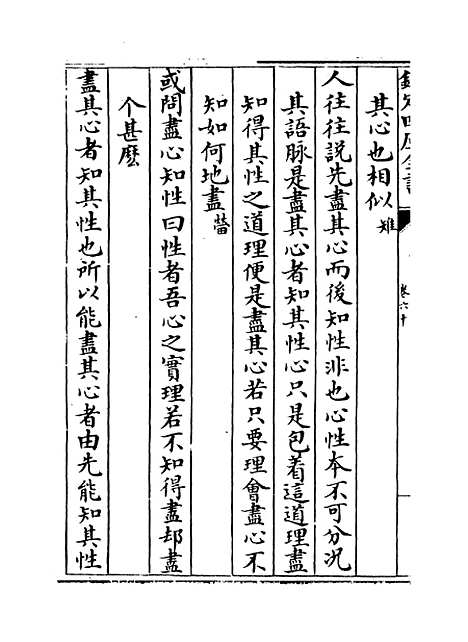 欽定四庫全書
卷六十
其心也相似雉
人往往説先盡其心而後知性非也心性本不可分況
其語脉是盡其心者知其性心只是包着這道理盡
知得其性之道理便是盡其心若只要理會盡心不
知如何地盡㽦
或問盡心知性曰性者吾心之實理若不知得盡却盡
个甚麽
盡其心者知其性也所以能盡其心者由先能知其性